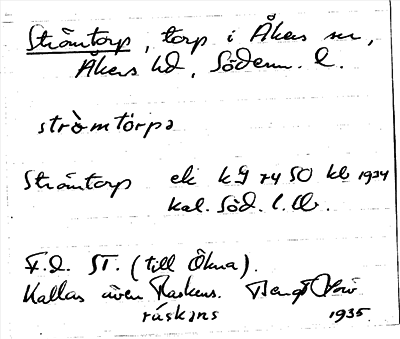 Strömtorp, torp i Åkers sn,
Åkers hd, Söderm. l.
strömtorpə
Strömtorp ek kg 74 50 kb 1934
kal. Söd. l.
F.d. ST. (till Ökna).
Kallas även Raskens. Bengt
ráskəns 1935